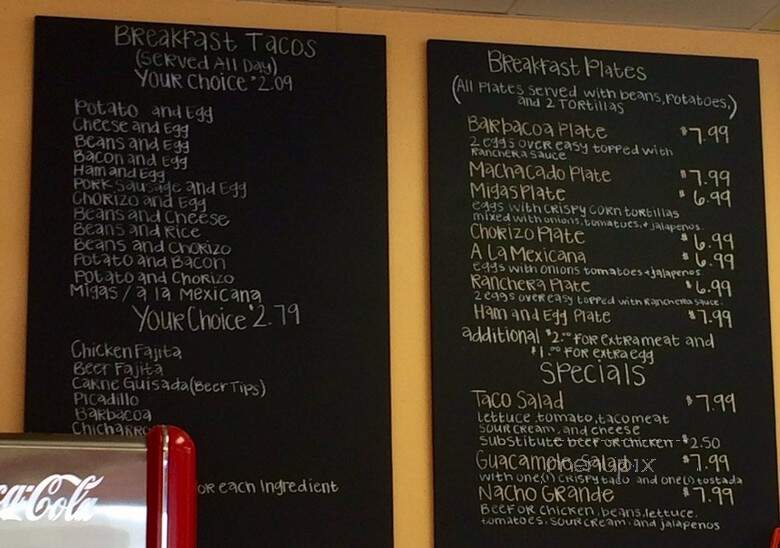 Breakfast Tacos
(Served All Day)
Your Choice $2.09
Potato and Egg
Cheese and Egg
Beans and Egg
Bacon and Egg
Ham and Egg
Pork Sausage and Egg
Chorizo and Egg
Beans and Cheese
Beans and Rice
Beans and Chorizo
Potato and Bacon
Potato and Chorizo
Migas / a la Mexicana
Your Choice $2.79
Chicken Fajita
Beef Fajita
Carne Guisada (Beef Tips)
Picadillo
Barbacoa
Chicharro
or each Ingredient
Coca-Cola
Breakfast Plates
(All Plates served with beans, potatoes,
and 2 Tortillas)
Barbacoa Plate $7.99
2 eggs over easy topped with
Ranchera Sauce
Machacado Plate $7.99
Migas Plate $6.99
eggs with crispy corn tortillas
mixed with onions, tomatoes, + jalapenos
Chorizo Plate $6.99
A La Mexicana $6.99
eggs with onions tomatoes + jalapenos
Ranchera Plate $6.99
2 eggs over easy topped with Ranchera sauce.
Ham and Egg Plate $7.99
additional $2.00 for extra meat and
$1.00 for extra egg
Specials
Taco Salad $7.99
lettuce, tomato, taco meat
sour cream, and cheese
Substitute beef or chicken - $2.50
Guacamole Salad $7.99
with one(1) crispy taco and one(1) tostada
Nacho Grande $7.99
Beef or chicken, beans, lettuce,
tomatoes, sour cream, and jalapenos